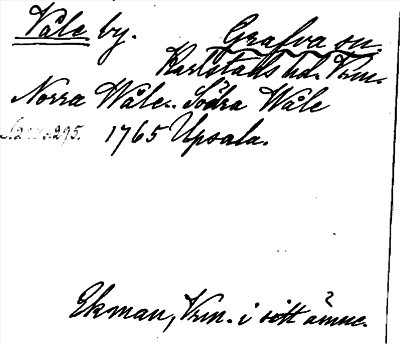 Våle by. Grafva sn.
Karlstads hd. Vrm.
Norra Wåle. Södra Wåle
295. 1765 Upsala.
Ekman, Vrm. i sitt ämne.